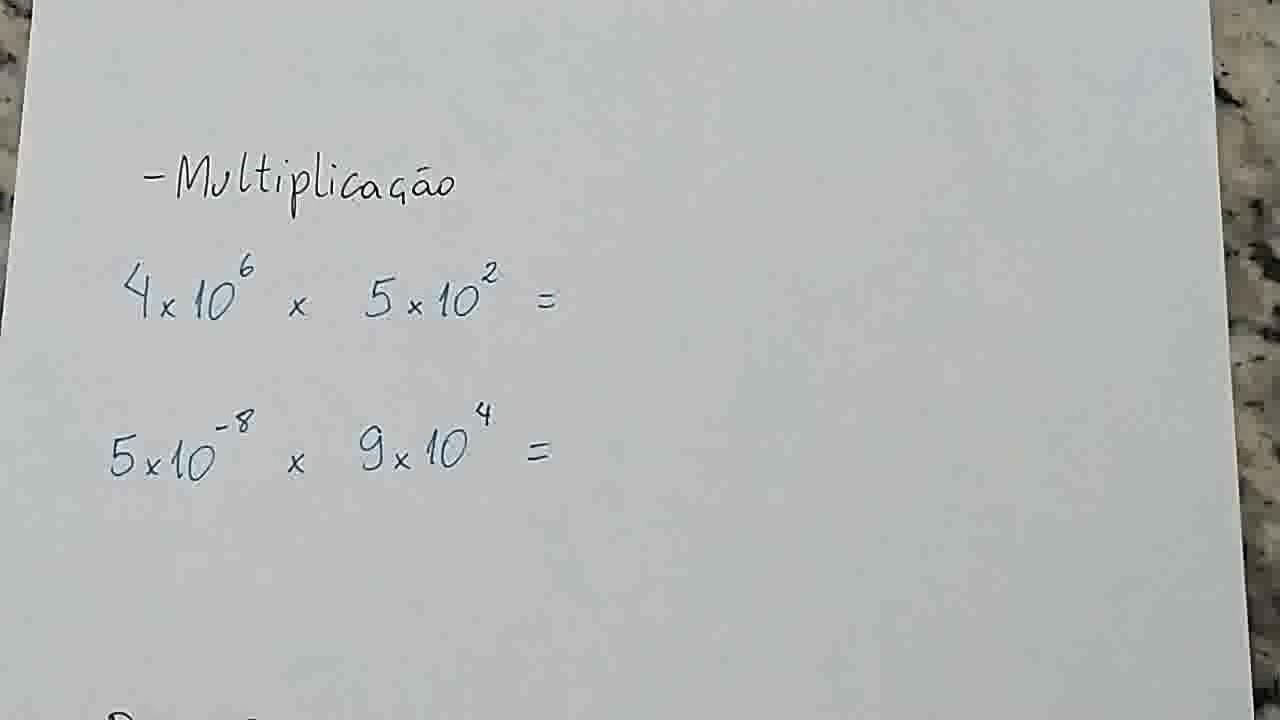 - Multiplicação
4 x 10⁶ x 5 x 10² =
5 x 10⁻⁸ x 9 x 10⁴ =